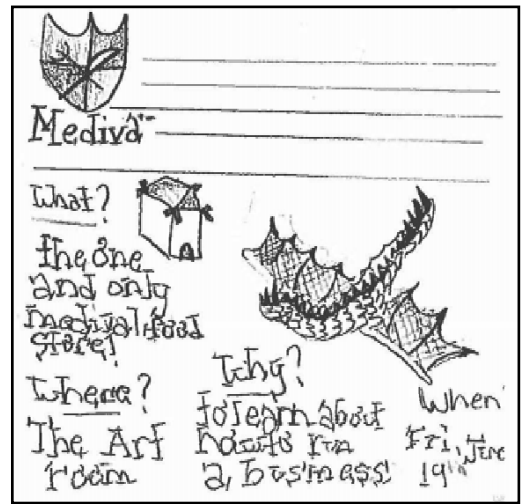 Mediva
What?
the one
and only
medival food
store!
Where?
The Art
room
Why?
to learn about
how to run
a, business
When
Fri, June
19th